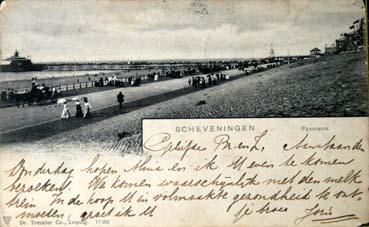 SCHEVENINGEN
Panorama
Gelijke M. en L. Aanstaande
Donderdag hopen Anna en ik U even te komen
bezoeken. We komen waarschijnlijk met den melk
trein. In de hoop U in volmaakte gezondheid te ont-
moeten, groet ik U
Je broer Joris
Dr. Trenkler Co., Leipzig. 17 351